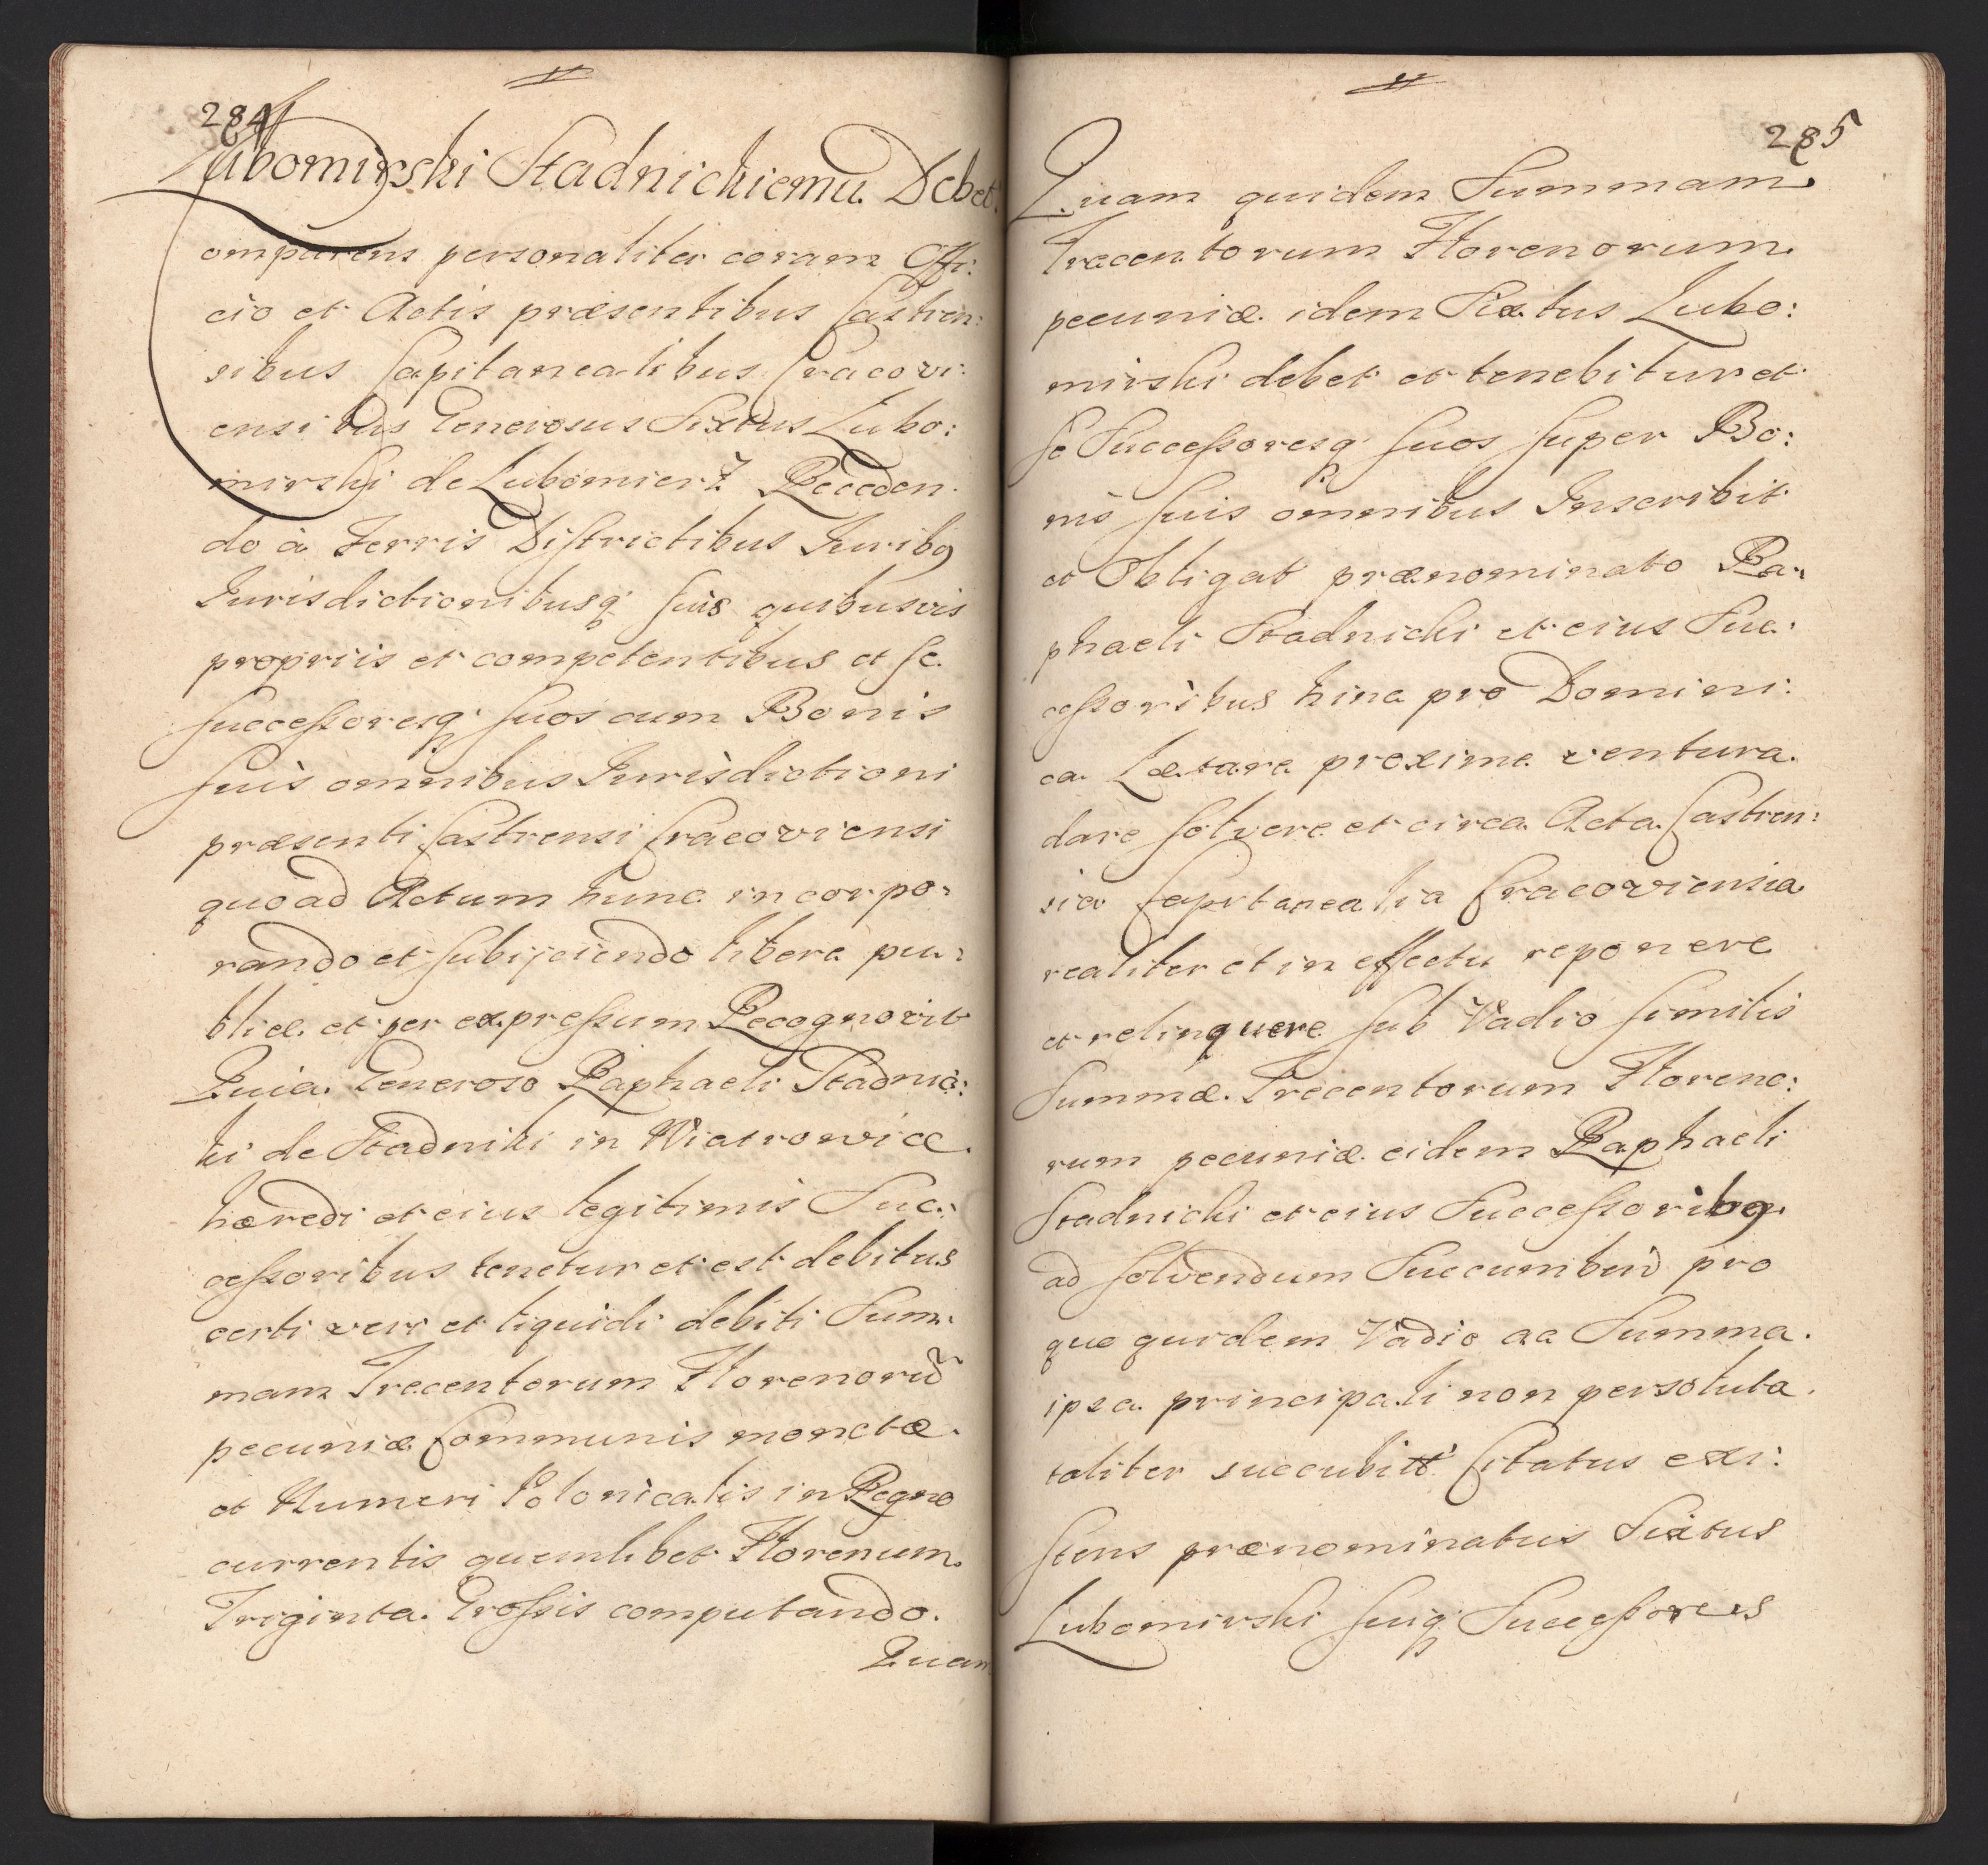 284
Lubomirski Stadnickiemu Debet.
Comparens personaliter coram Offi:
cio et Actis præsentibus Castren:
sibus Capitanealibus Cracovi:
ensibus Generosus Sixtus Lubo:
mirski de Lubomierz Receden:
do à Terris Districtibus Juribq
Jurisdictionibusq suis quibusvis
propriis et competentibus et se
Successoresq suos cum Bonis
suis omnibus Jurisdictioni
præsenti Castrensi Cracoviensi
quoad Actum hunc incorpo:
rando et subijciendo libere pu:
blice et per expressum Recognovit
Quia Generoso Raphaeli Stadnic:
ki de Stadniki in Wiatrowice
hæredi et eius legitimis Suc:
cessoribus tenetur et est debitus
certi veri et liquidi debiti Sum:
mam Trecentorum Florenorũ
pecuniæ Communis monetæ
et Numeri Polonicalis in Regno
currentis quemlibet Florenum
Triginta Grossis computando.
Quam
285
Quam quidem Summam
Trecentorum Florenorum
pecuniæ idem Sixtus Lubo:
mirski debet et tenebitur et
se Successoresq suos super Bo:
nis suis omnibus Inscribit
et Obligat prænominato Ra:
phaeli Stadnicki et eius Suc:
cessoribus hinc pro Domini:
ca Lætare proxime ventura
dare solvere et circa Acta Castren:
sia Capitanealia Cracoviensia
realiter et in effectu reponere
et relinquere sub Vadio similis
Summæ Trecentorum Floreno:
rum pecuniæ eidem Raphaeli
Stadnicki et eius Successoribq
ad solvendum Succumben̄ pro
quo quidem Vadio ac Summa
ipsa principali non persoluta
taliter succubitt Citatus exi:
stens prænominatus Sixtus
Lubomirski suiq Successores